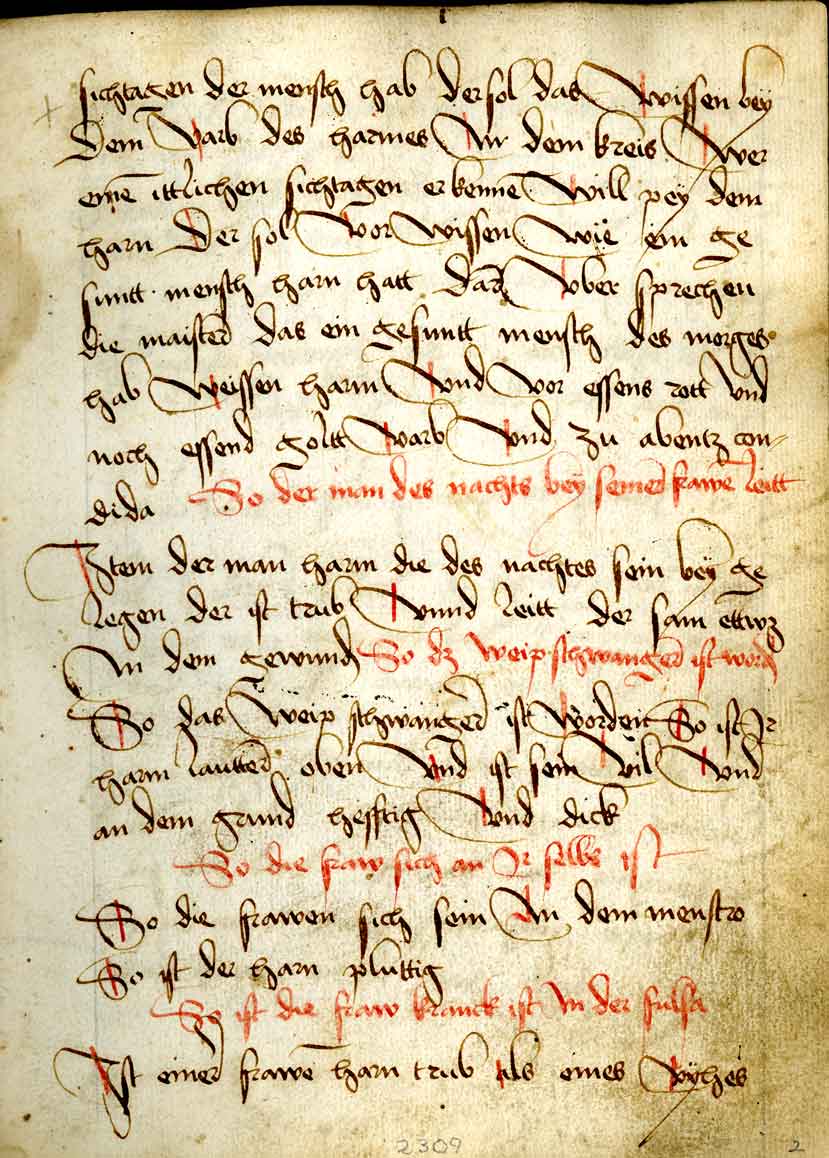 sichtagen der mensch hab der sol das wissen bey
Dem varb des harmes In dem kreis Wer
eine ittlichen sichtagen erkenne will pey dem
harn Der sol vor wissen wie ein ge
suntt mensch harn hatt dar vber sprechen
die maister das ein gesuntt mensch des morges
hab weissen harm vnd vor essens rott vnd
noch essend goltt varb vnd zu abentz con-
dida So der man des nachts bey seiner frawe leitt
Item der man harm die des nachtes sein bey ge
legen der ist trub vnnd leitt der sam ettwz
In dem gewund So dz weip schwanger ist word
So das weip schwanger ist worden So ist Ir
harm lautter oben vnd ist sein vil vnd
an dem grund hefftig vnd dick
So die fraw sich an Ir selbs ist
So die frawen sich sein In dem menstro
So ist der harn pluttig
So ist die fraw kranck ist In der sulsa
Ist einer frawe harn trub als eines vyhes
2309
2